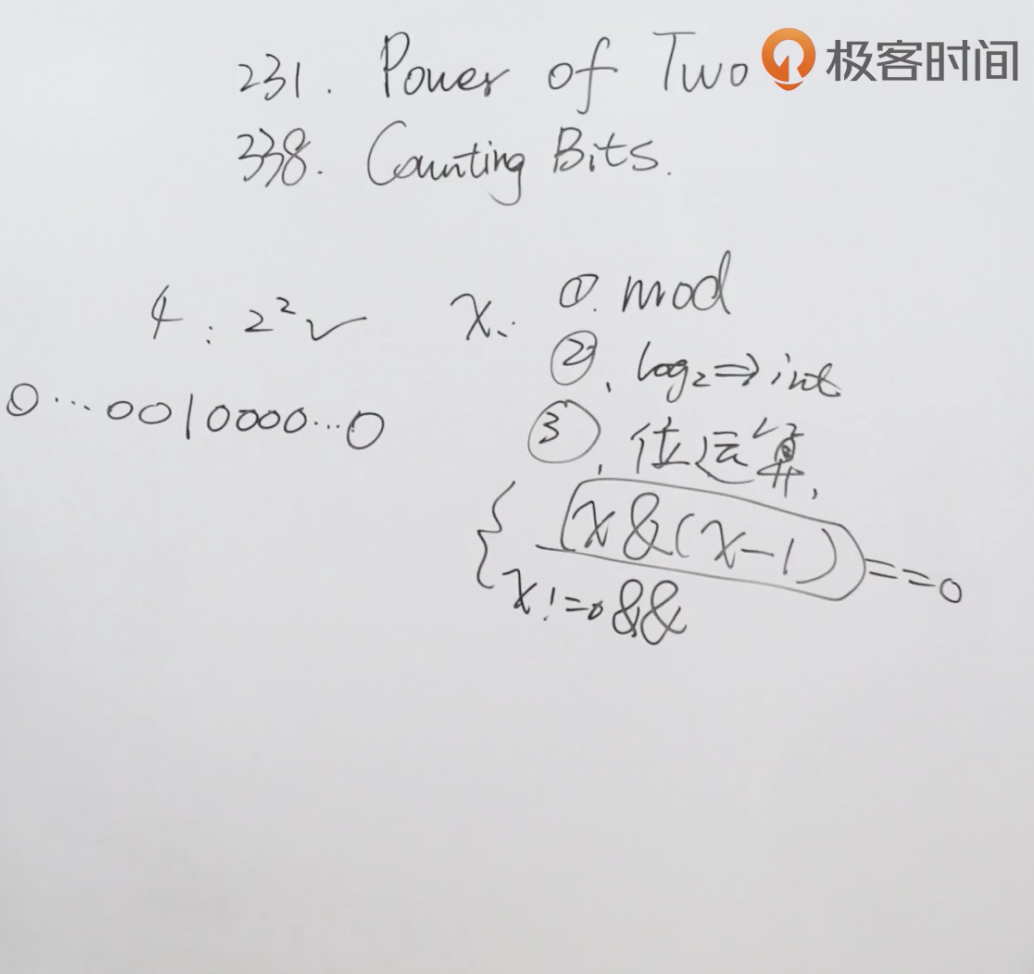 231. Power of Two
极客时间
338. Counting Bits.
4 : 2² ✓
0...0010000...0
x.. ①. mod
②. log₂⇒int
③. 位运算.
{ (x&(x-1))==0
x!=0&&